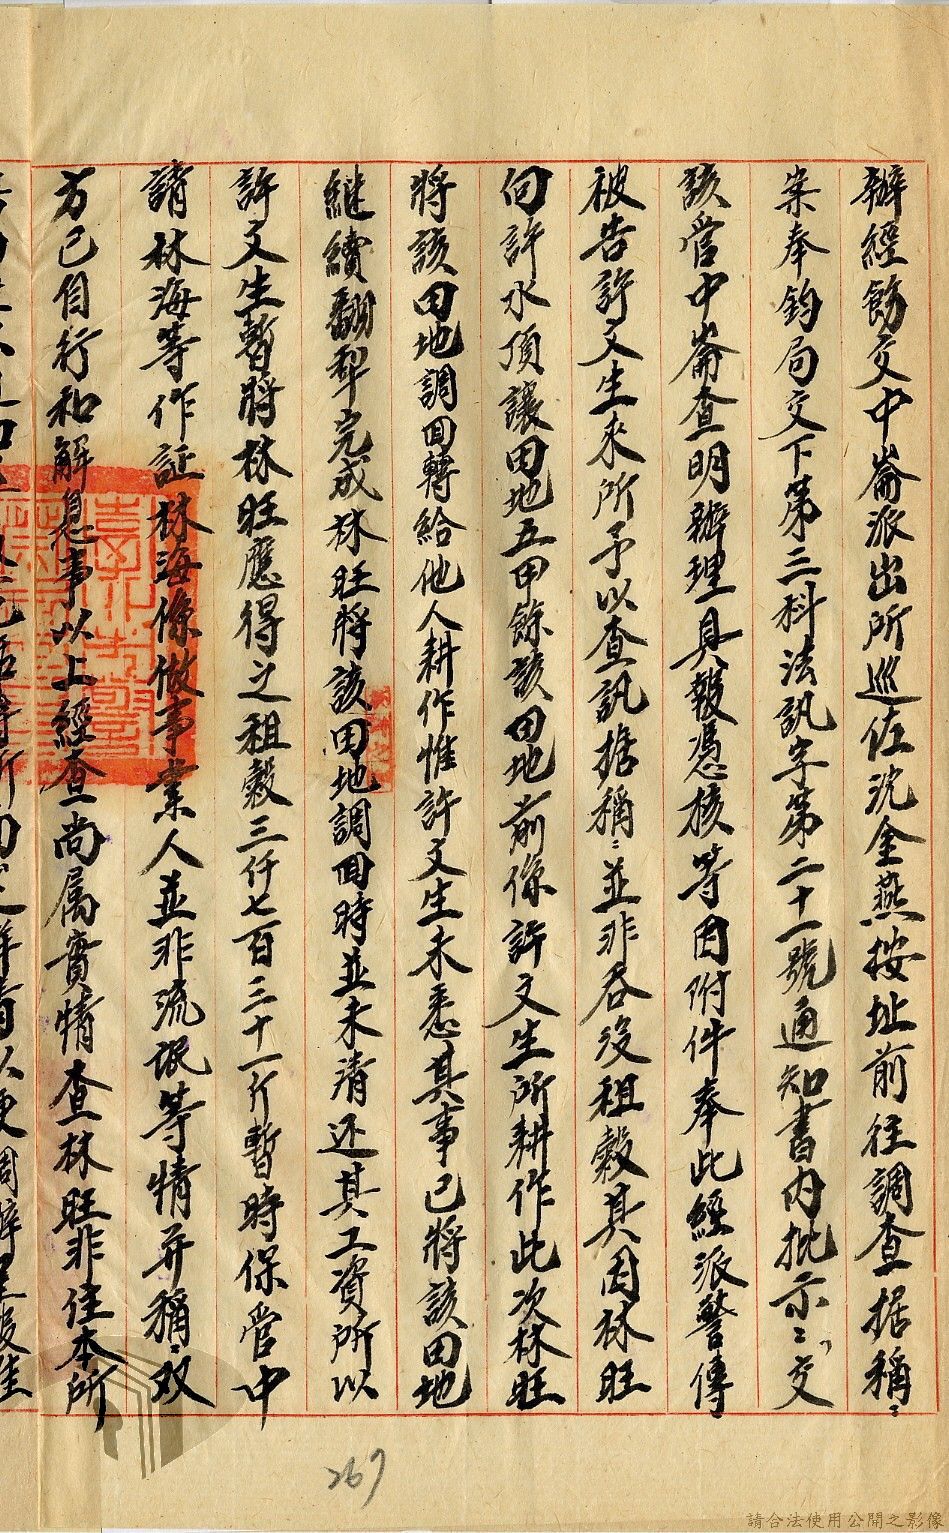 辦經飭交中崙派出所巡佐沈金燕按址前往調查据稱：
案奉鈞局交下第三科法訊字第二十一號通知書内批示：「交
該管中崙查明辦理具報憑核等因附件奉此經派警傳
被告許文生來所予以查訊据稱：並非吞没租穀其因林旺
向許水頂讓田地五甲餘該田地前係許文生所耕作此次林旺
將該田地調回轉給他人耕作惟許文生未悉其事已將該田地
継續翻犂完成林旺將該田地調回時並未清还其工資所以
許文生暫將林旺應得之租穀三仟七百三十一斤暫時保管中
請林海等作証林海係做事業人並非流氓等情并稱：双
方已自行和解息事以上經查尚属實情查林旺非住本所
269
請合法使用公開之影像